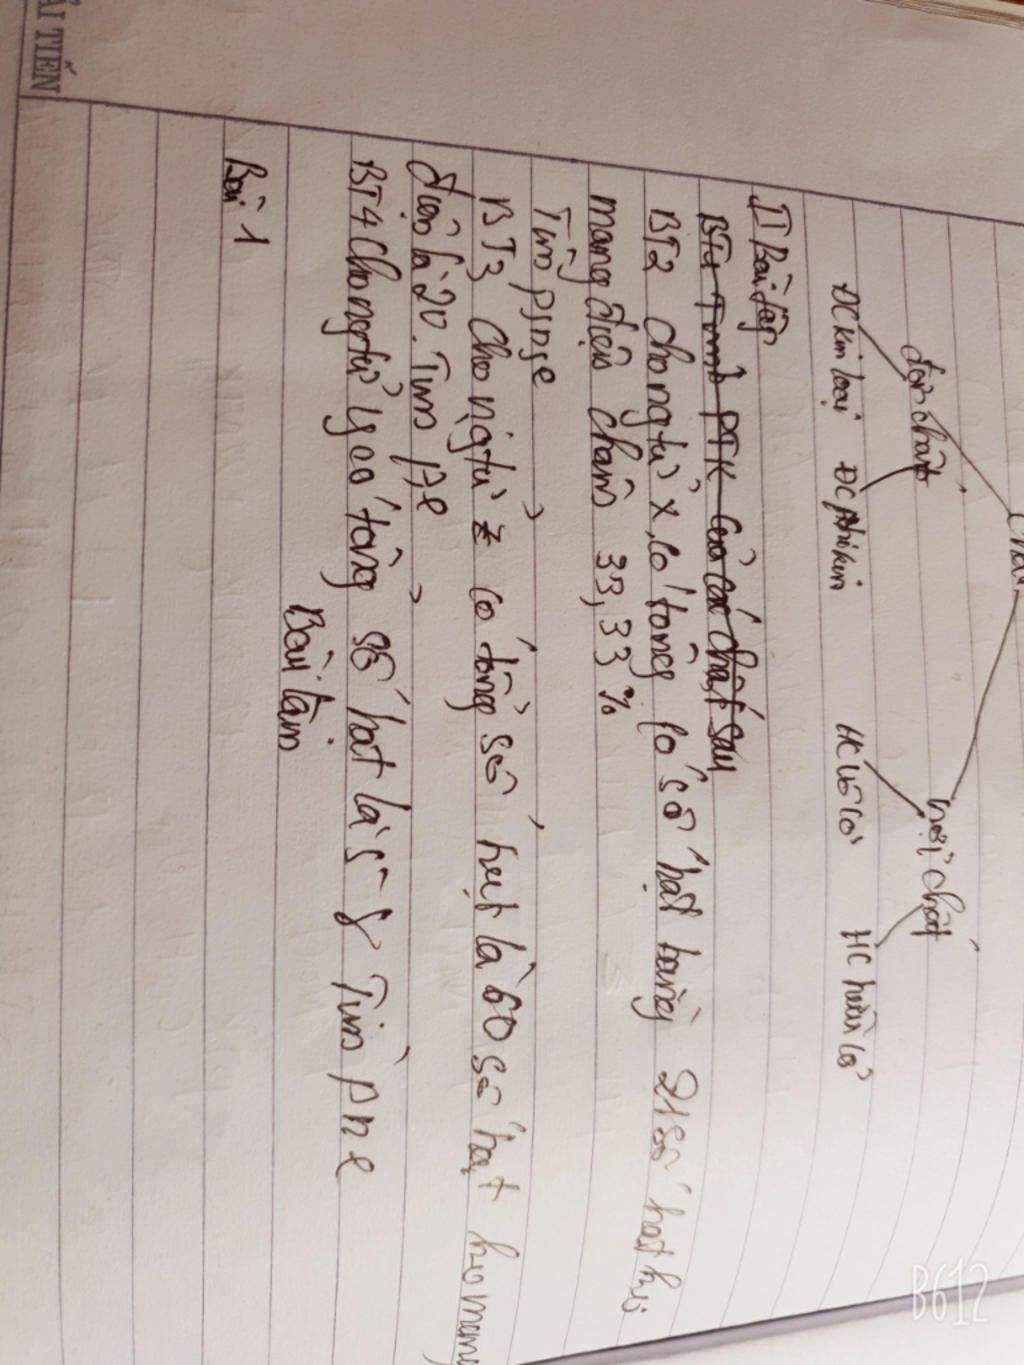 Chất
đơn chất hợp chất
ĐC kim loại ĐC phi kim HC vô cơ HC hữu cơ
II Bài tập
BT1 Tính PTK của các chất sau
BT2 cho ngtử x, có tổng có số hạt bằng 21 số hạt ko
mang điện chiếm 33,33 %
Tìm p, n, e
BT3 Cho ngtử z có tổng số hạt là 60 số hạt ko mang
điện là 20. Tìm p, e
BT4 Cho ngtử y có tổng số hạt là 58 Tìm p n e
Bài làm
Bài 1
ẢI TIẾN
B612